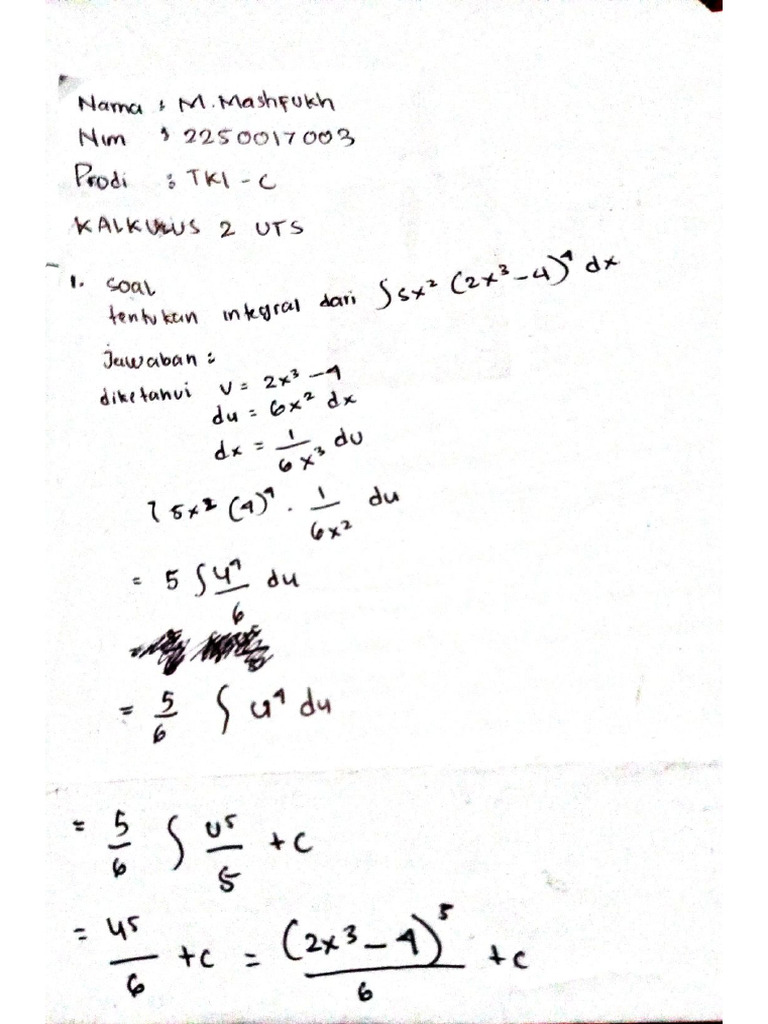 Nama : M. Mashfukh
Nim : 2250017003
Prodi : TKI - C
KALKULUS 2 UTS
1. soal
tentukan integral dari ∫5x² (2x³-4)⁴ dx
Jawaban :
diketahui u = 2x³ - 4
du = 6x² dx
dx = 1/6x³ du
∫ 5x² (4)⁴ . 1/6x² du
= 5 ∫ u⁴/6 du
= 5/6 ∫ u⁴ du
= 5/6 ∫ u⁵/5 + c
= u⁵/6 + c = (2x³-4)⁵/6 + c